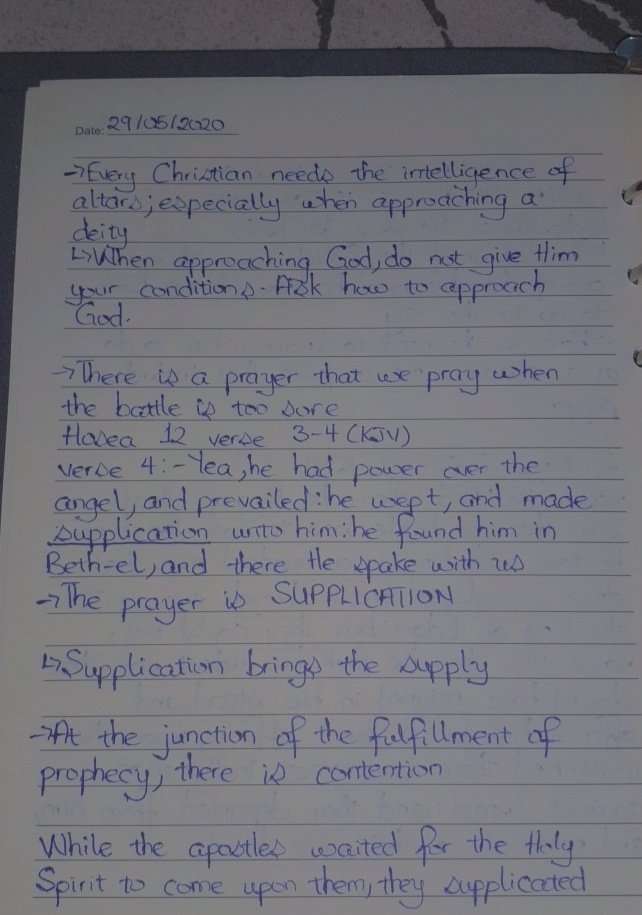 Date: 29/05/2020
→Every Christian needs the intelligence of
altars; especially when approaching a
deity
↳When approaching God, do not give Him
your conditions. Ask how to approach
God.
→There is a prayer that we pray when
the battle is too sore
Hosea 12 verse 3-4 (KJV)
verse 4:- Yea, he had power over the
angel, and prevailed: he wept, and made
supplication unto him: he found him in
Beth-el, and there He spake with us
→The prayer is SUPPLICATION
↳Supplication brings the supply
→At the junction of the fulfillment of
prophecy, there is contention
While the apostles waited for the Holy
Spirit to come upon them, they supplicated